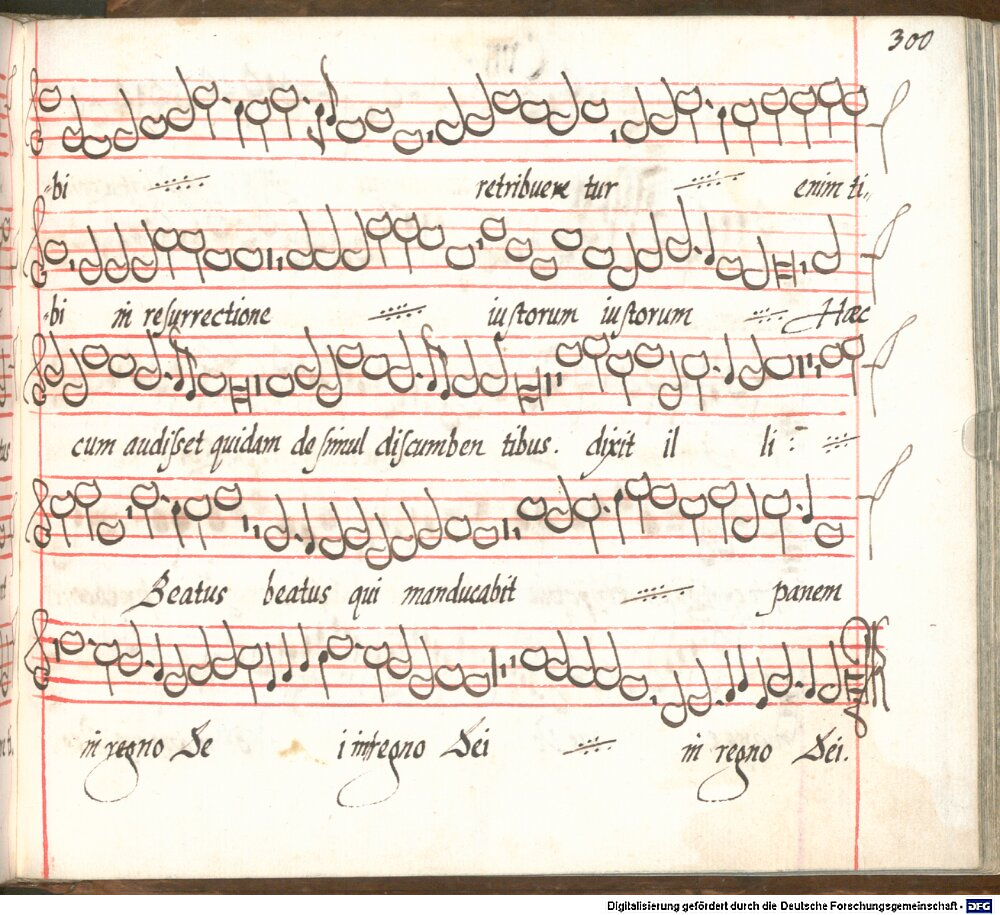 300
-bi retribuere tur enim ti-
-bi in resurrectione iustorum iustorum Hæc
cum audisset quidam de simul discumben tibus. dixit il li:
Beatus beatus qui manducabit panem
in regno De i in regno Dei in regno Dei.
Digitalisierung gefördert durch die Deutsche Forschungsgemeinschaft - DFG